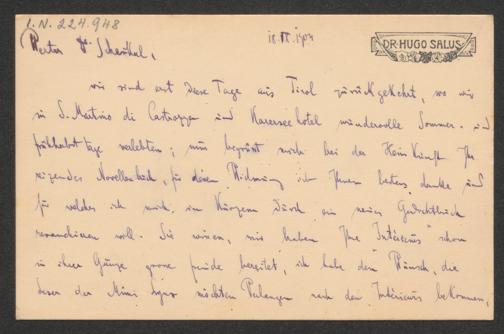 I.N. 224.948
18. IX. 1904
DR. HUGO SALUS
Werter Dr Scheukal,
wir sind erst dieser Tage aus Tirol zurückgekehrt, wo wir
in S. Martino di Castrozza und Karerseehotel wundervolle Sommer- und
frühherbsttage verlebten; nun begrüsst mich bei der Heimkunft Ihr
reizendes Novellenbuch, für dessen Widmung ich Ihnen bestens danke und
für welches ich mich in Kürzem durch ein neues Gedichtbuch
revanchieren will. Sie wissen, mir haben Ihre "Intérieurs" schon
in ihrer Gänze grosse freude bereitet, ich habe den Wunsch, die
Leser der Mimi Lynx möchten Verlangen nach den Intérieurs bekommen,